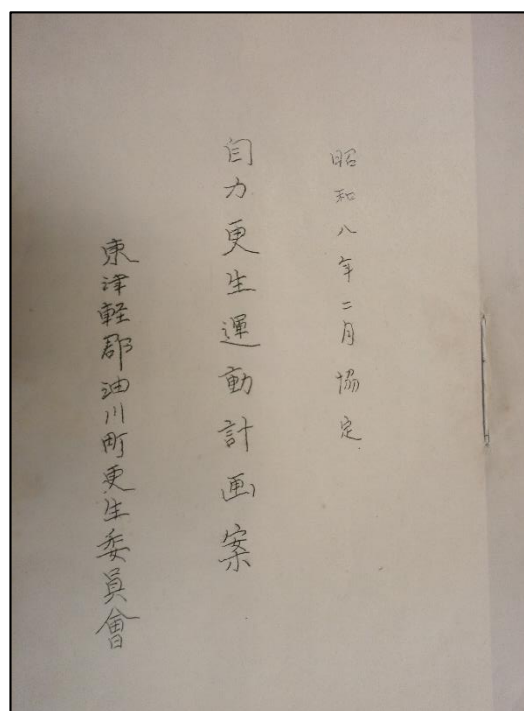 昭和八年二月協定
自力更生運動計画案
東津軽郡油川町更生委員會